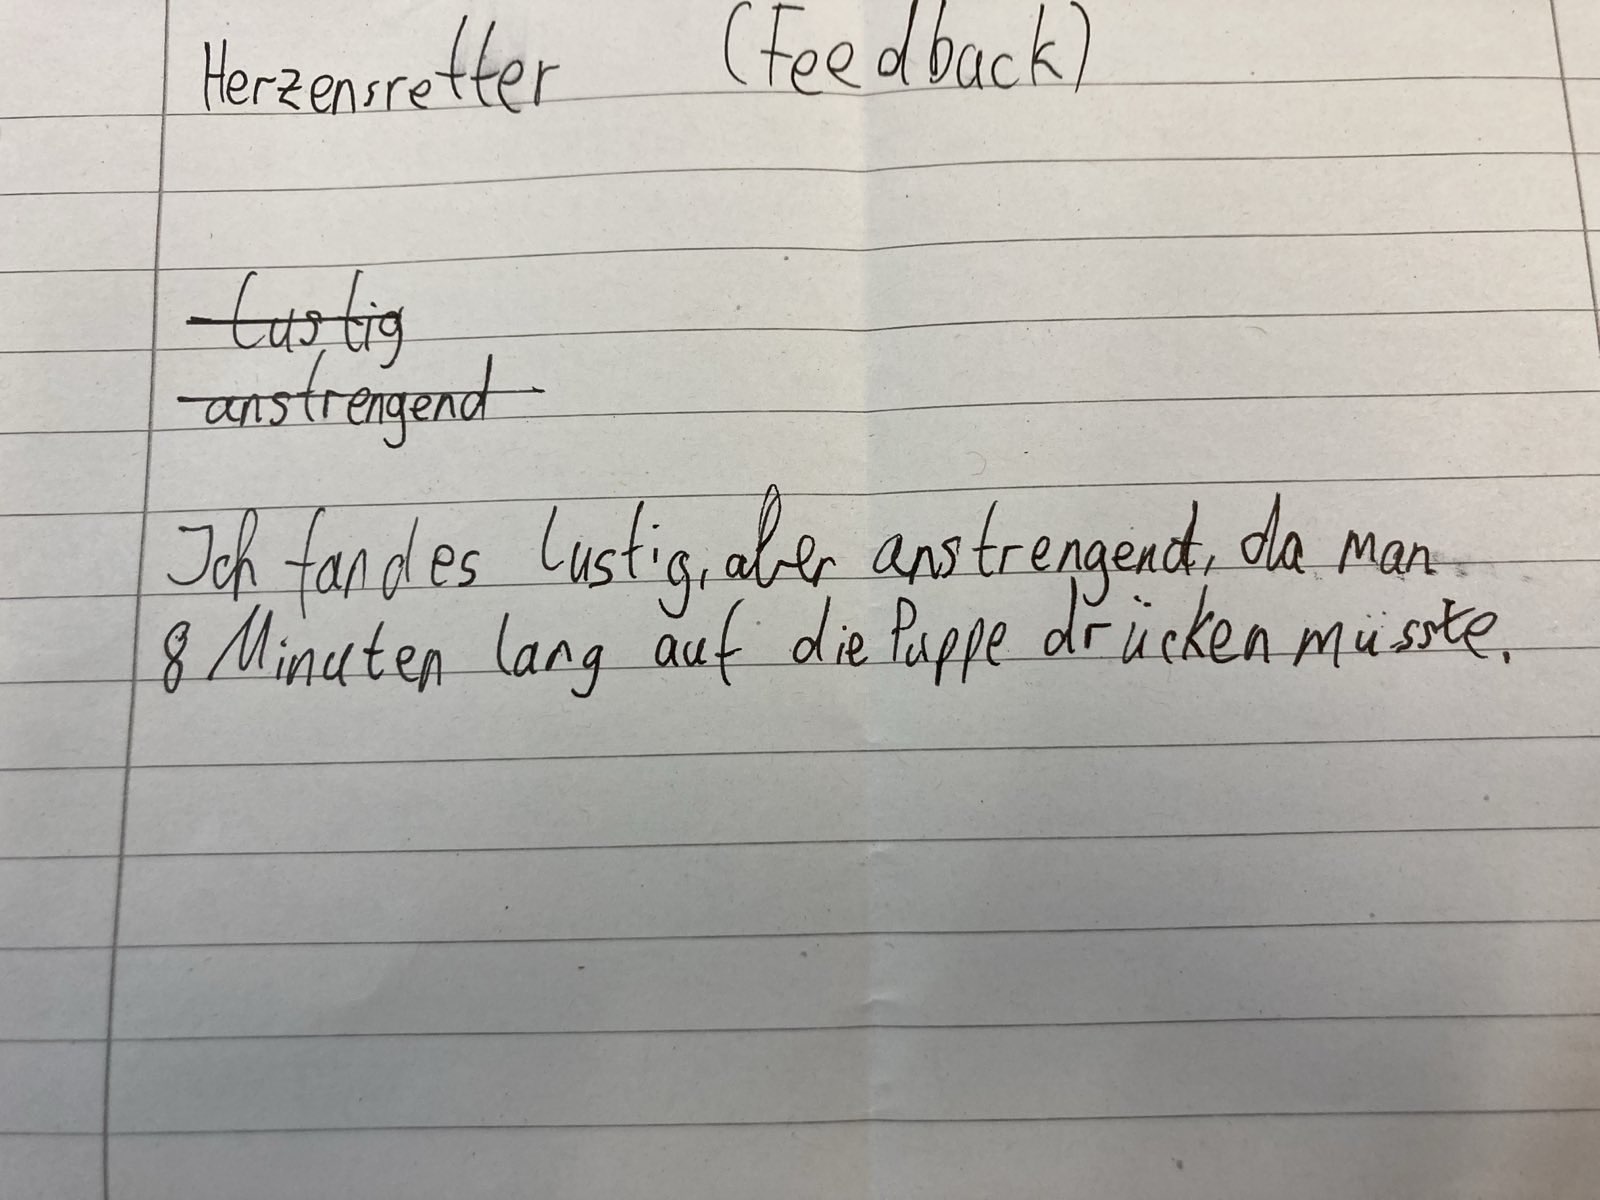 Herzensretter (Feedback)
lustig
anstrengend
Ich fand es lustig, aber anstrengend, da man
8 Minuten lang auf die Puppe drücken müsste.